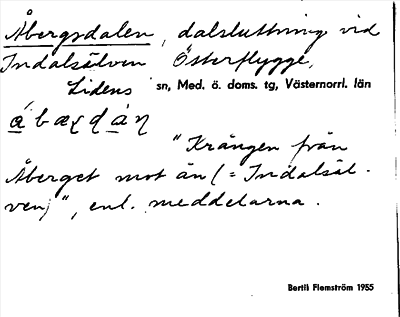 Åbergsdalen, dalsluttning vid
Indalsälven Österflygge,
Lidens sn, Med. ö. doms. tg, Västernorrl. län
"Krången från
Åberget mot än (= Indalsäl-
ven)", enl. meddelarna.
Bertil Flemström 1955